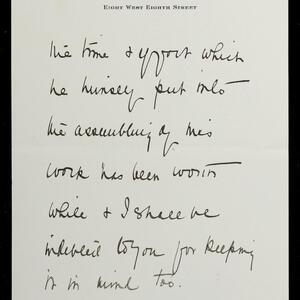 EIGHT WEST EIGHTH STREET
the time & effort which
he himself put into
the assembling of this
work has been worth
while & I shall be
indebted to you for keeping
it in mind too.